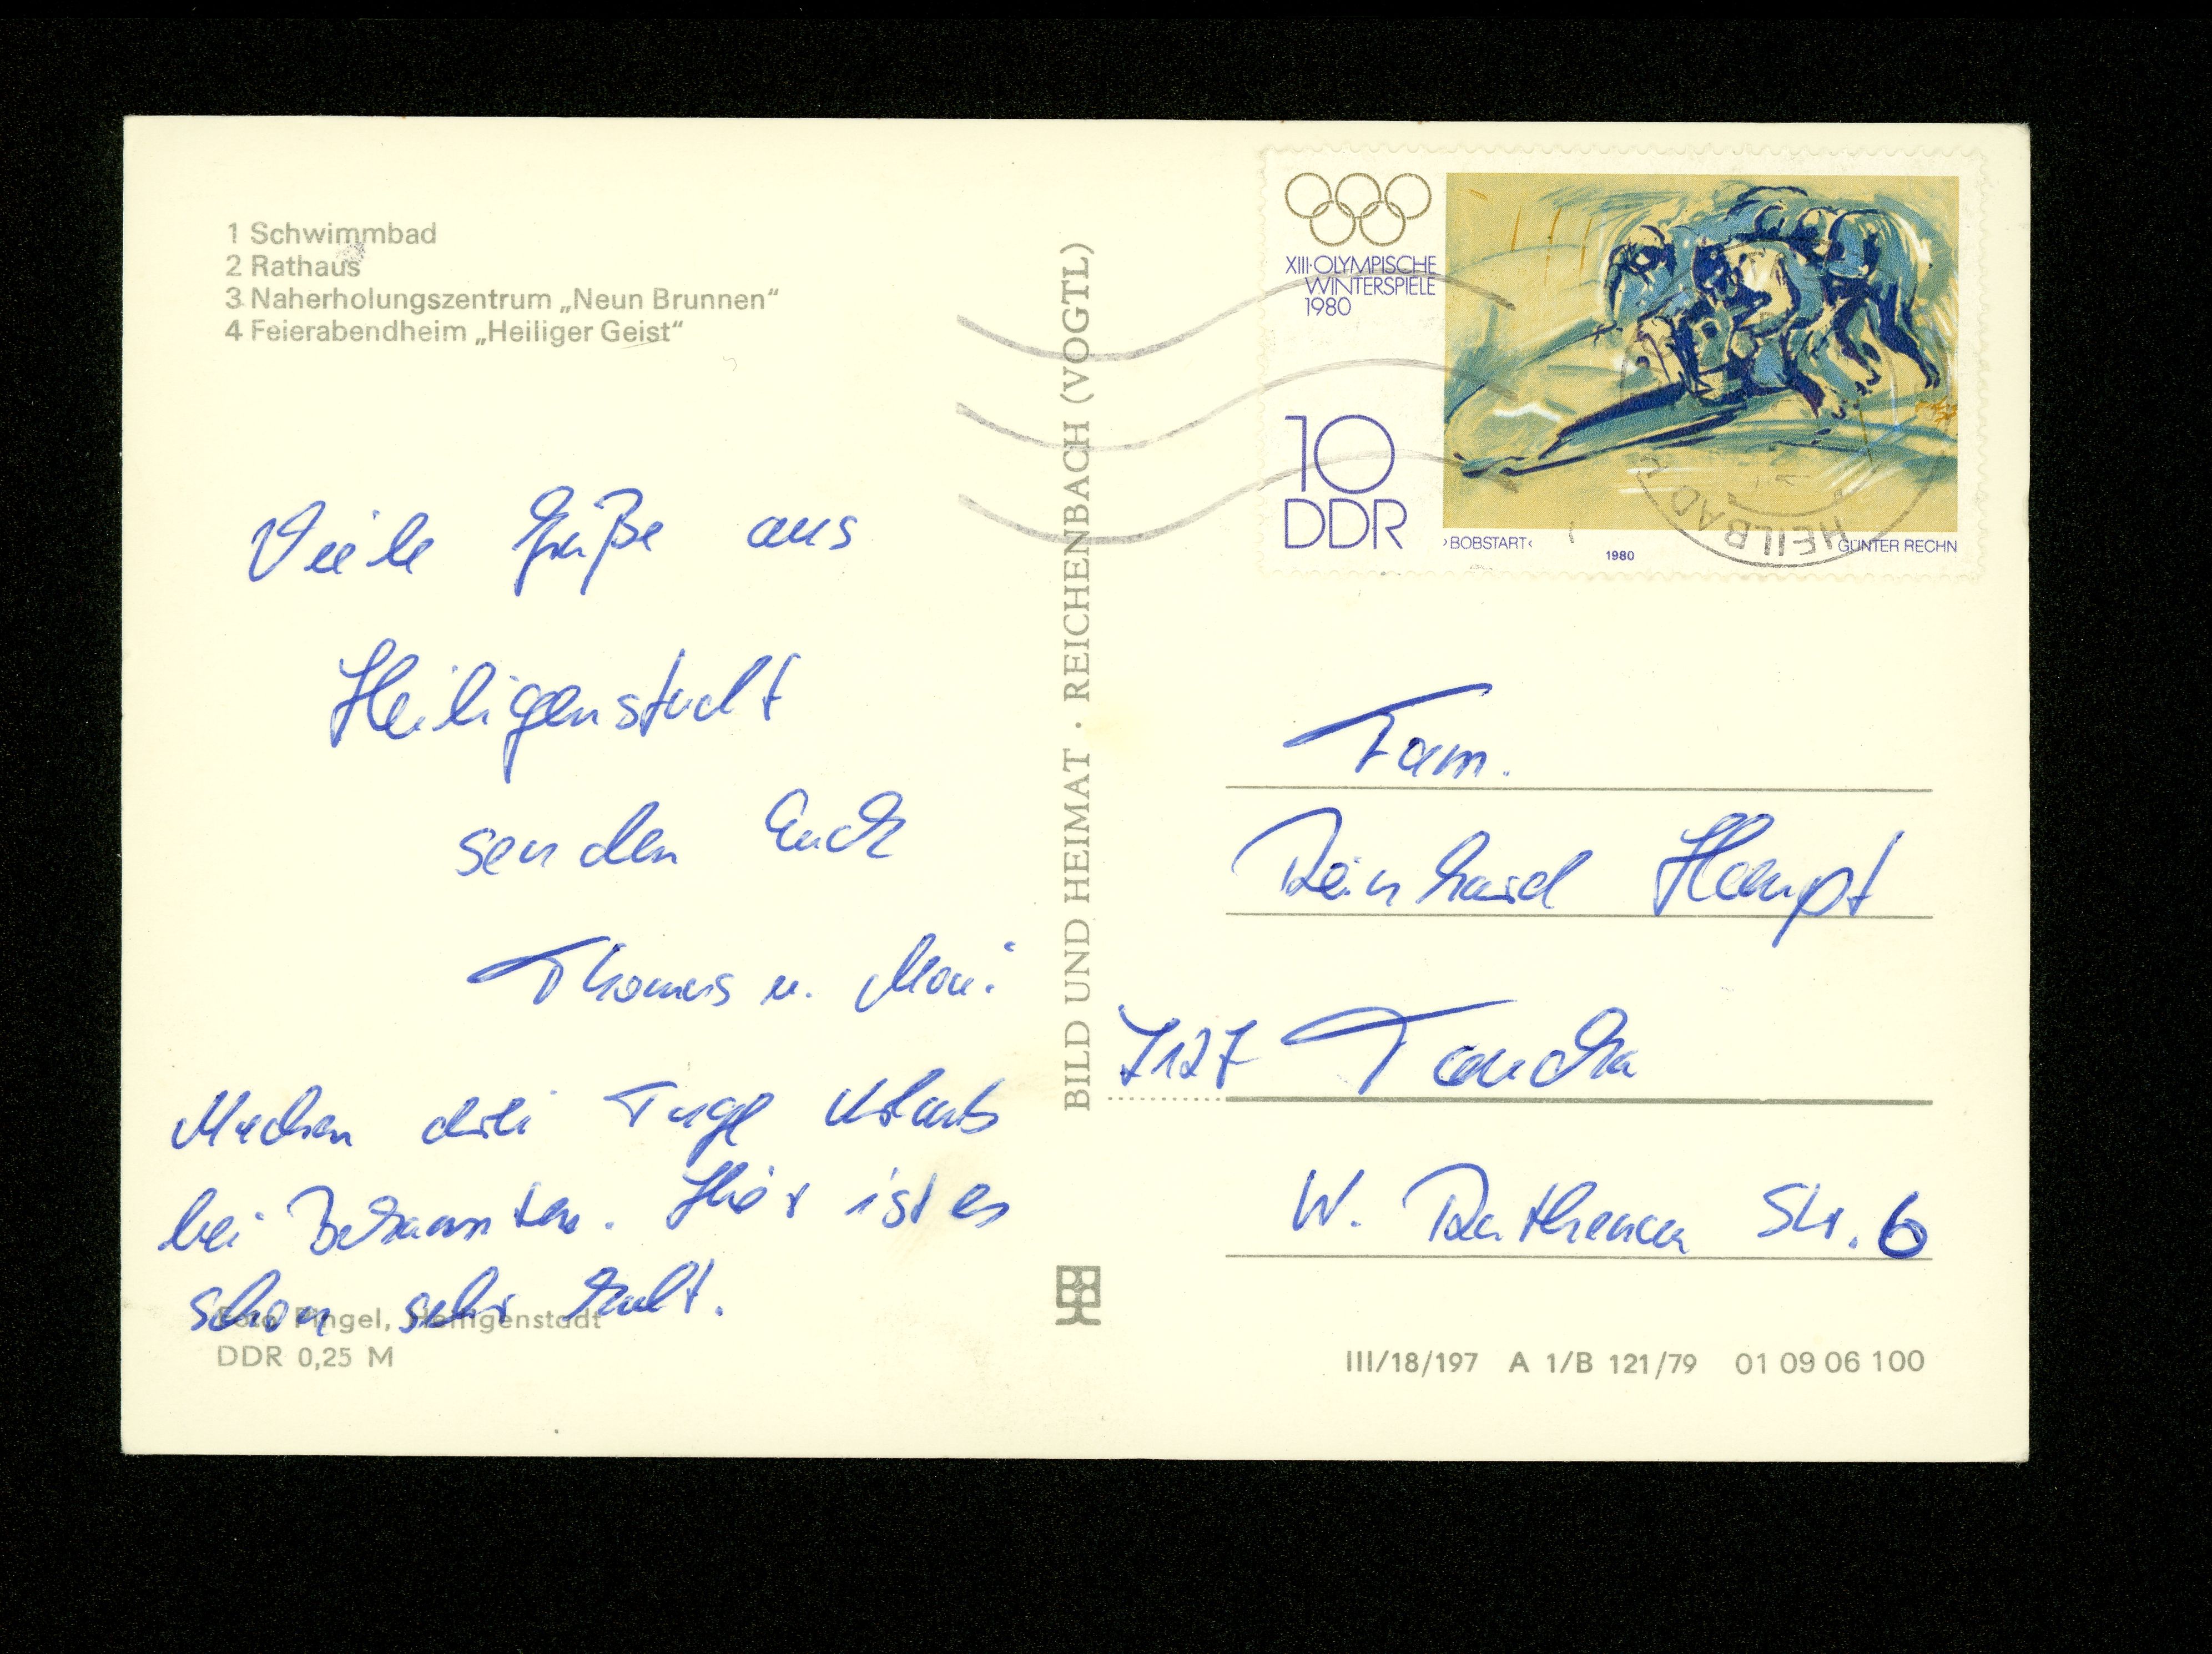 1 Schwimmbad
2 Rathaus
3 Naherholungszentrum „Neun Brunnen“
4 Feierabendheim „Heiliger Geist“
Viele Grüße aus
Heiligenstadt
senden Euch
Thomas u. Moni
Machen drei Tage Urlaub
bei Bekannten. Hier ist es
schon sehr kalt.
Foto Pingel, Heiligenstadt
DDR 0,25 M
BILD UND HEIMAT · REICHENBACH (VOGTL)
XIII·OLYMPISCHE
WINTERSPIELE
1980
10
DDR
›BOBSTART‹
1980
GÜNTER RECHN
HEILBAD
Fam.
Reinhard Hempt
7127 Taucha
W. Rathenau Str. 6
III/18/197 A 1/B 121/79 01 09 06 100